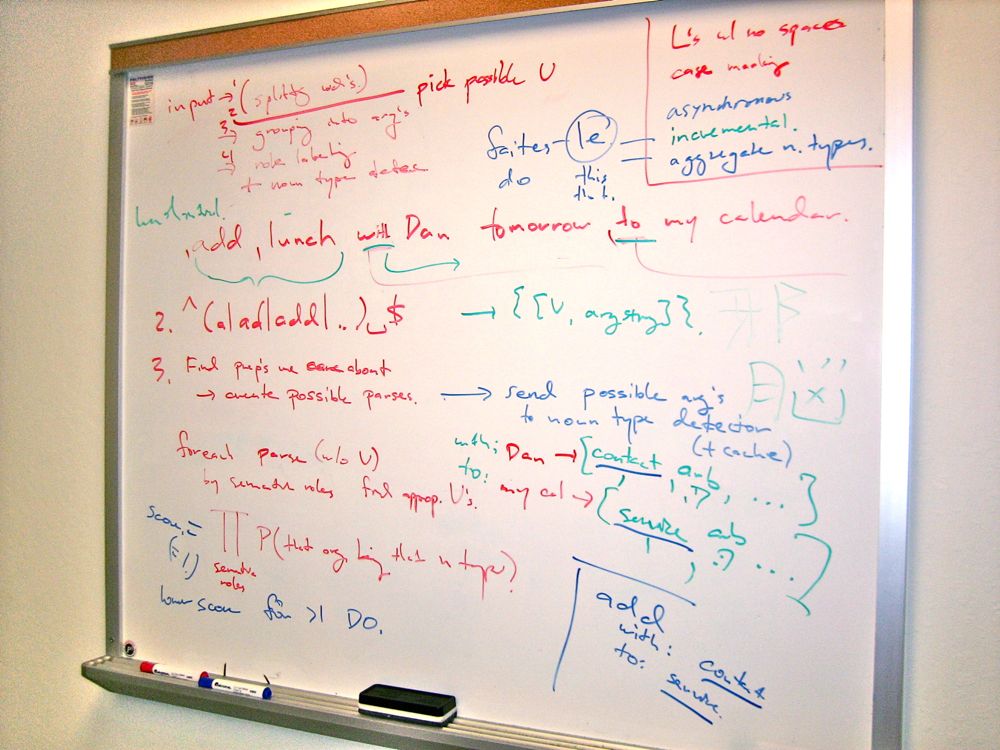 input → 1 (splitting wds.) pick possible V
2
3 → grouping into arg's
4 → role labeling
+ noun type detec
L's w/ no spaces
case marking
asynchronous
incremental.
aggregate n. types.
faites - le
do this
that.
add, lunch with Dan tomorrow to my calendar.
2. ^(a|ad|add|..)␣$ → {[V, argstring]}.
3. Find prep's we care about
→ create possible parses. → send possible arg's
to noun type detector
(+ cache)
foreach parse (w/o V)
by semantic roles find approp. V's.
with: Dan → {contact, arb, ...}
to: my cal → {service, arb, ...}
score = ∏ P(that arg being that n type)
semantic
roles
(= 1.)
lower score for >1 DO.
add
with: contact
to: service